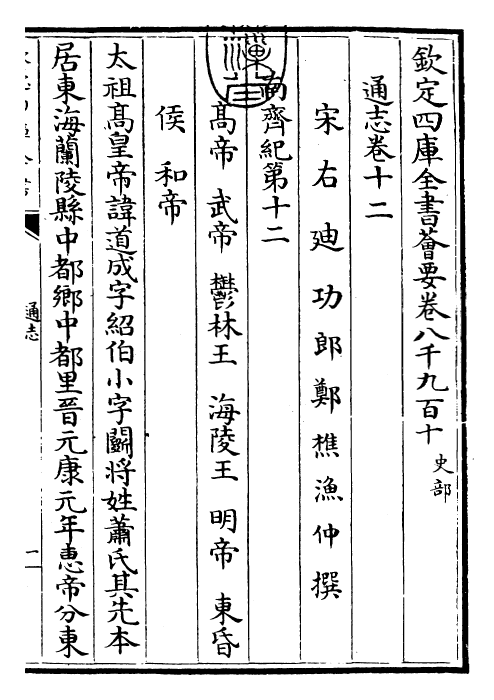 欽定四庫全書薈要卷八千九百十 史部
通志卷十二
宋右迪功郎鄭樵漁仲撰
南齊紀第十二
高帝 武帝 鬱林王 海陵王 明帝 東昏
侯 和帝
太祖高皇帝諱道成字紹伯小字鬭將姓蕭氏其先本
居東海蘭陵縣中都鄉中都里晉元康元年惠帝分東
通志
一